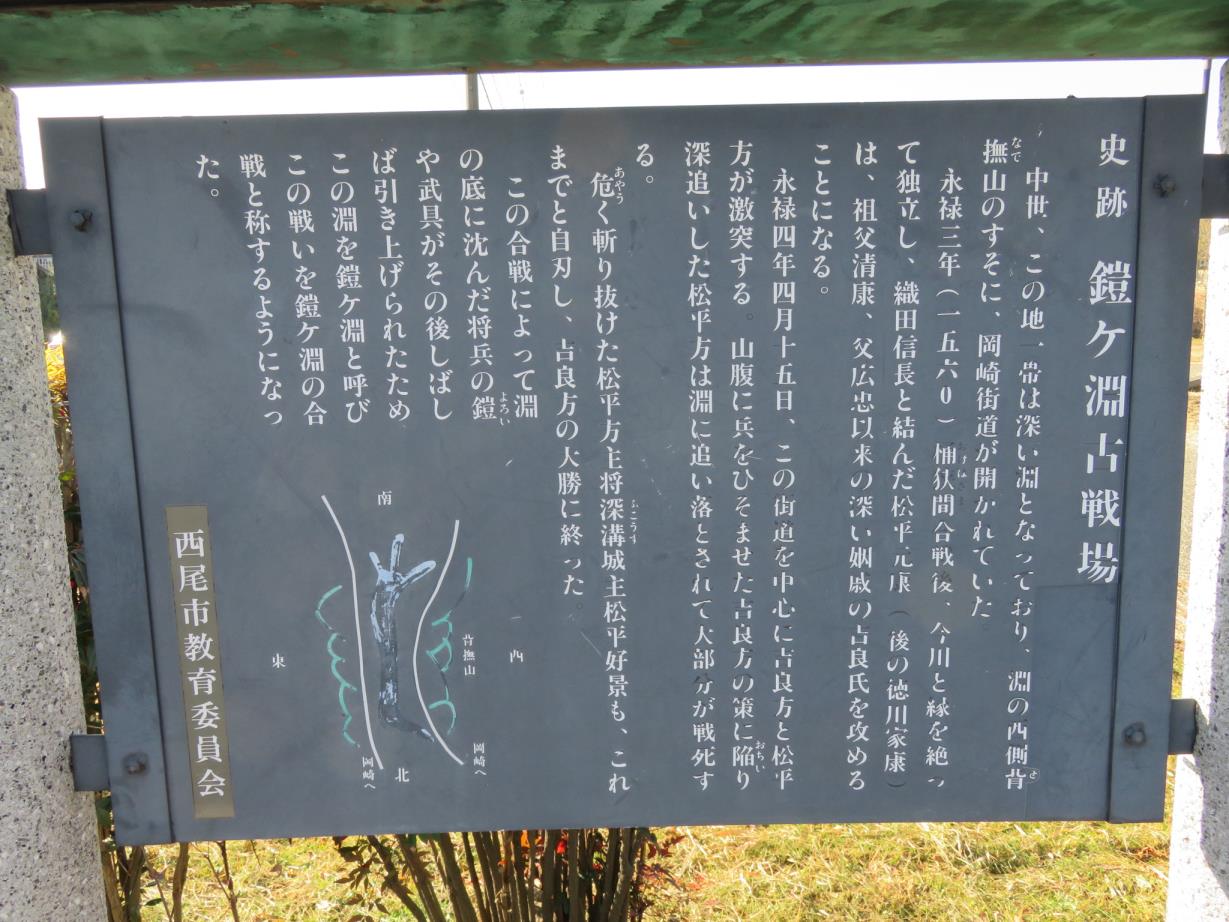 史跡 鎧ケ淵古戦場
中世、この地一帯は深い淵となっており、淵の西側背
撫山のすそに、岡崎街道が開かれていた
永禄三年(一五六0)桶狭間合戦後、今川と縁を絶っ
て独立し、織田信長と結んだ松平元康(後の徳川家康)
は、祖父清康、父広忠以来の深い姻戚の吉良氏を攻める
ことになる。
永禄四年四月十五日、この街道を中心に吉良方と松平
方が激突する。山腹に兵をひそませた吉良方の策に陥り
深追いした松平方は淵に追い落とされて大部分が戦死す
る。
危く斬り抜けた松平方主将深溝城主松平好景も、これ
までと自刃し、吉良方の大勝に終った。
この合戦によって淵
の底に沈んだ将兵の鎧
や武具がその後しばし
ば引き上げられたため
この淵を鎧ケ淵と呼び
この戦いを鎧ケ淵の合
戦と称するようになっ
た。
南
西
背撫山
東
北
岡崎へ
岡崎へ
西尾市教育委員会